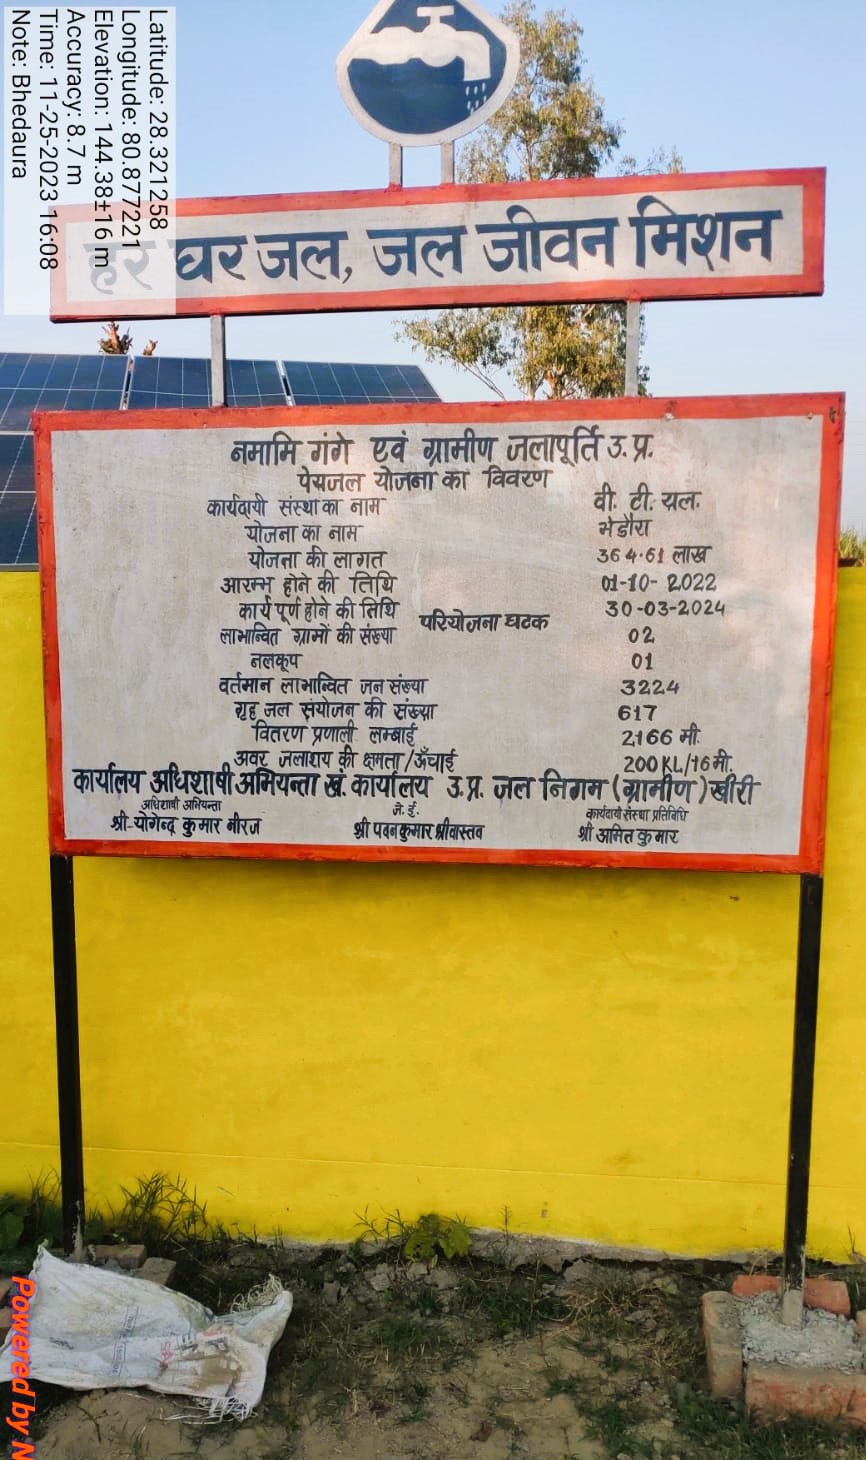 Latitude: 28.321258
Longitude: 80.877221
Elevation: 144.38±16 m
Accuracy: 8.7 m
Time: 11-25-2023 16:08
Note: Bhedaura
हर घर जल, जल जीवन मिशन
नमामि गंगे एवं ग्रामीण जलापूर्ति उ.प्र.
पेयजल योजना का विवरण
कार्यदायी संस्था का नाम वी. टी. यल.
योजना का नाम भेडौरा
योजना की लागत 364.61 लाख
आरम्भ होने की तिथि 01-10-2022
कार्य पूर्ण होने की तिथि 30-03-2024
परियोजना घटक
लाभान्वित ग्रामों की संख्या 02
नलकूप 01
वर्तमान लाभान्वित जन संख्या 3224
गृह जल संयोजन की संख्या 617
वितरण प्रणाली लम्बाई 2166 मी.
अवर जलाशय की क्षमता/ऊँचाई 200KL/16मी.
कार्यालय अधिशाषी अभियन्ता खं. कार्यालय उ.प्र. जल निगम (ग्रामीण) खीरी
अधिशाषी अभियन्ता जे. ई. कार्यदायी संस्था प्रतिविधि
श्री योगेन्द कुमार नीरज श्री पवन कुमार श्रीवास्तव श्री अमित कुमार
Powered by N